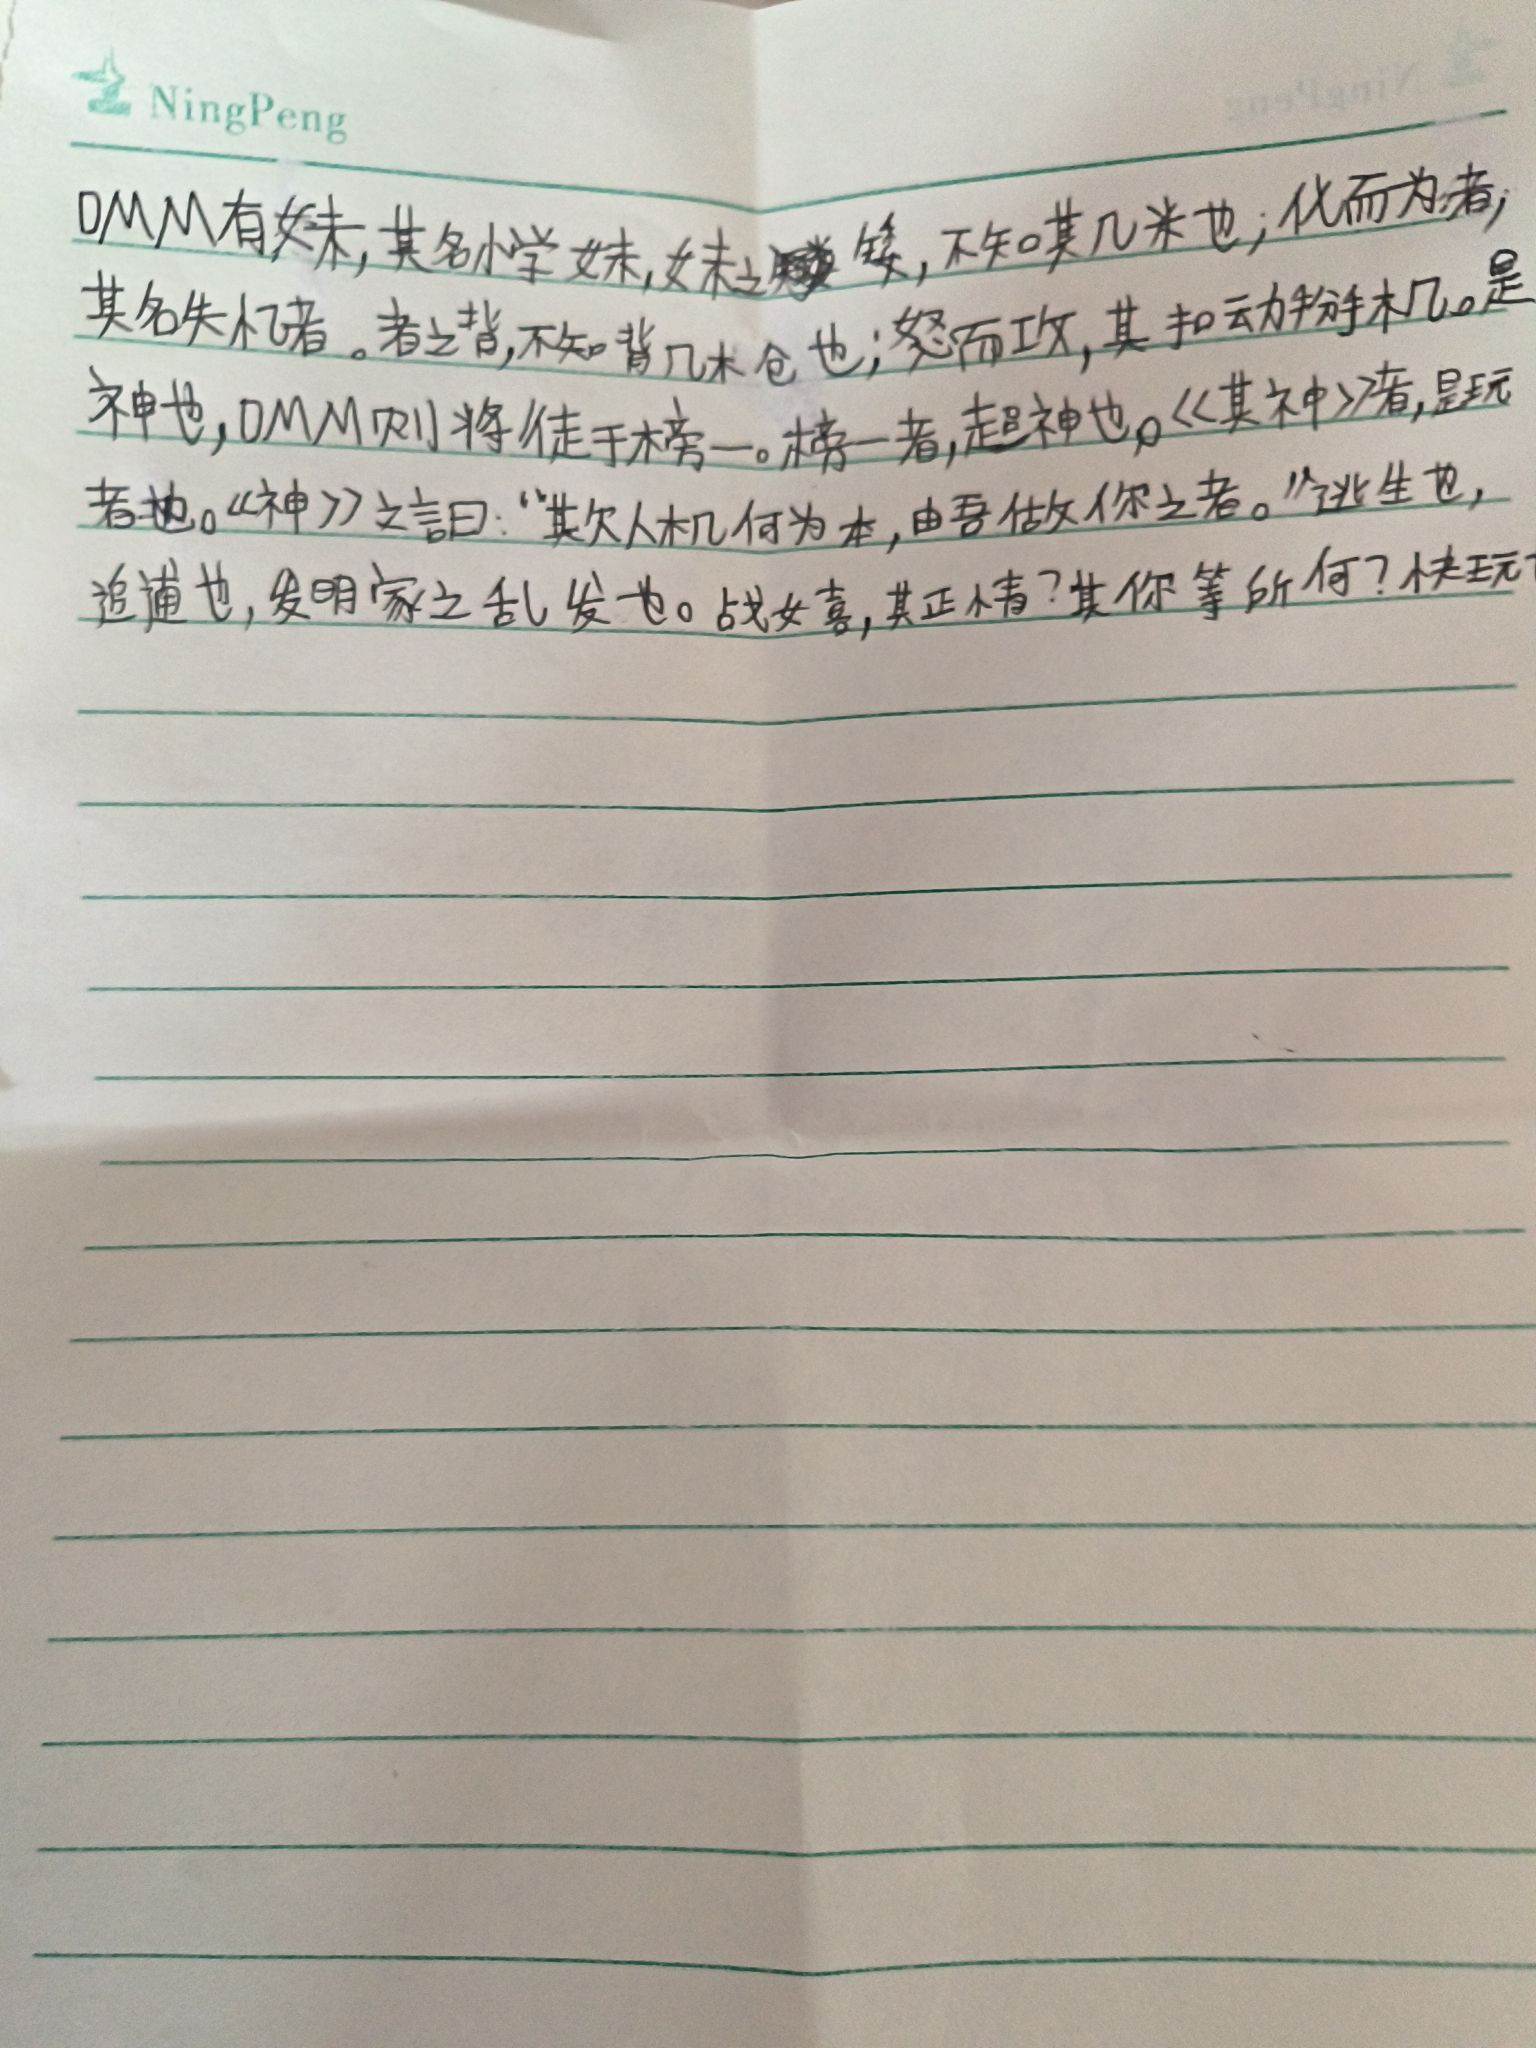 NingPeng
DMM有妹,其名小学妹,妹之矮,不知其几米也;化而为者,
其名失机者。者之背,不知背几木仓也;怒而攻,其扣动扮手机。是
神也,DMM则将徒于榜一。榜一者,超神也。《其神》者,是玩
者也。《神》之言曰:“其欠人机何为本,由吾做你之者。”逃生也,
追逋也,发明家之乱发也。战女喜,其正情?其你等所何?快玩